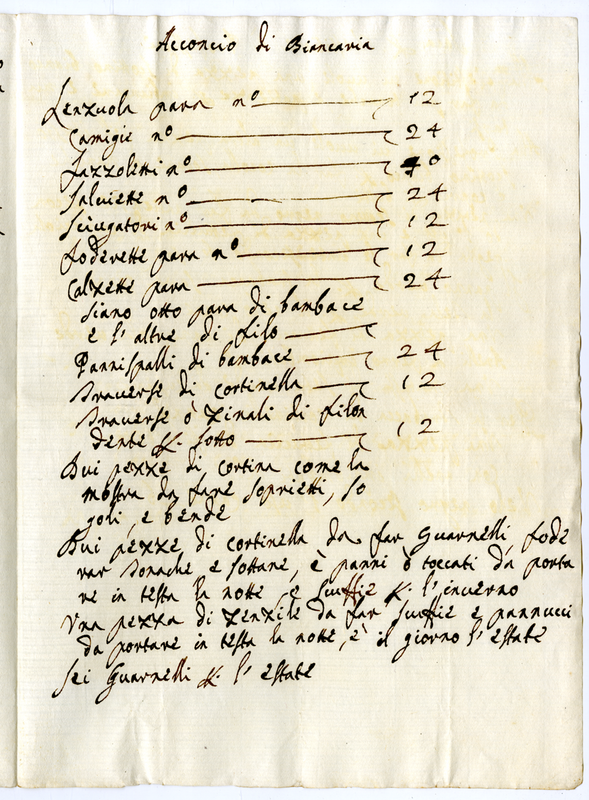 Acconcio di Biancaria
Lenzuola para nº 12
Camigie nº 24
Fazzoletti nº 40
Salviette nº 24
Sciugatori nº 12
Foderette para nº 12
Calzette para 24
siano otto para di bambace
e l'altre di filo
Pannispalli di bambace 24
Traverse di cortinella 12
Traverse ò Zinali di filon
dente p. sotto 12
Dui pezze di cortina come la
mostra da fare soprietti, so
goli, e bende
Dui pezze di cortinella da far Guarnelli, fode
rar Tonache e sottane, è panni ò toccati da porta
re in testa la notte, e scuffie p. l'inverno
Una pezza di Zenzile da far scuffie e pannucci
da portare in testa la notte, è il giorno l'estate
Sei Guarnelli p. l'estate